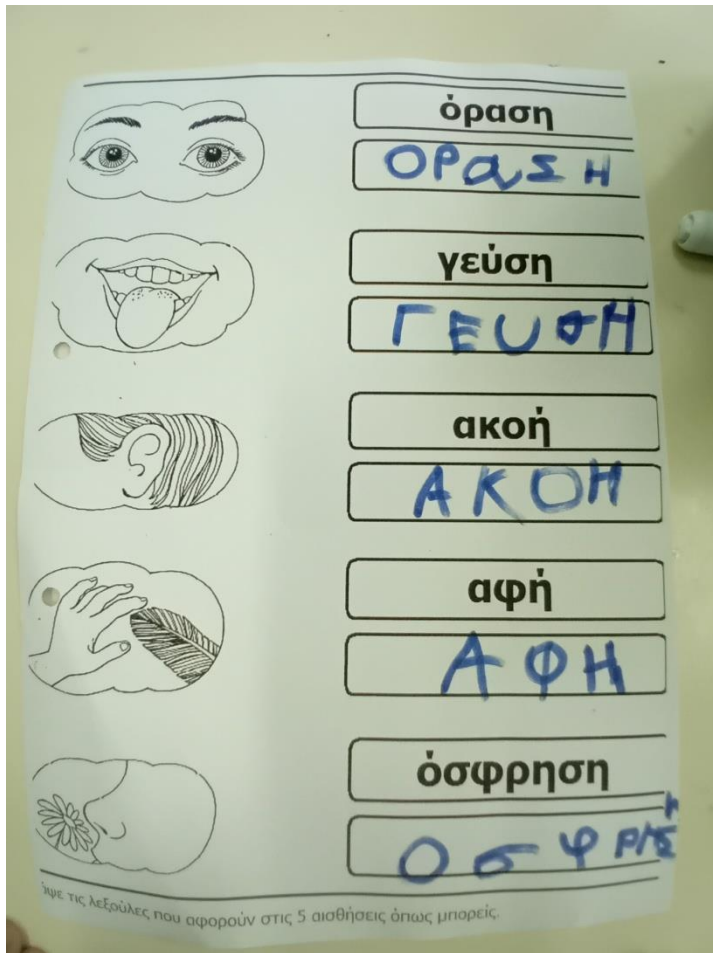 όραση
ΟΡαΣΗ
γεύση
ΓΕUσΗ
ακοή
ΑΚΟΗ
αφή
ΑΦΗ
όσφρηση
ΟσφΡΗΣΗ
ιψε τις λεξούλες που αφορούν στις 5 αισθήσεις όπως μπορείς.